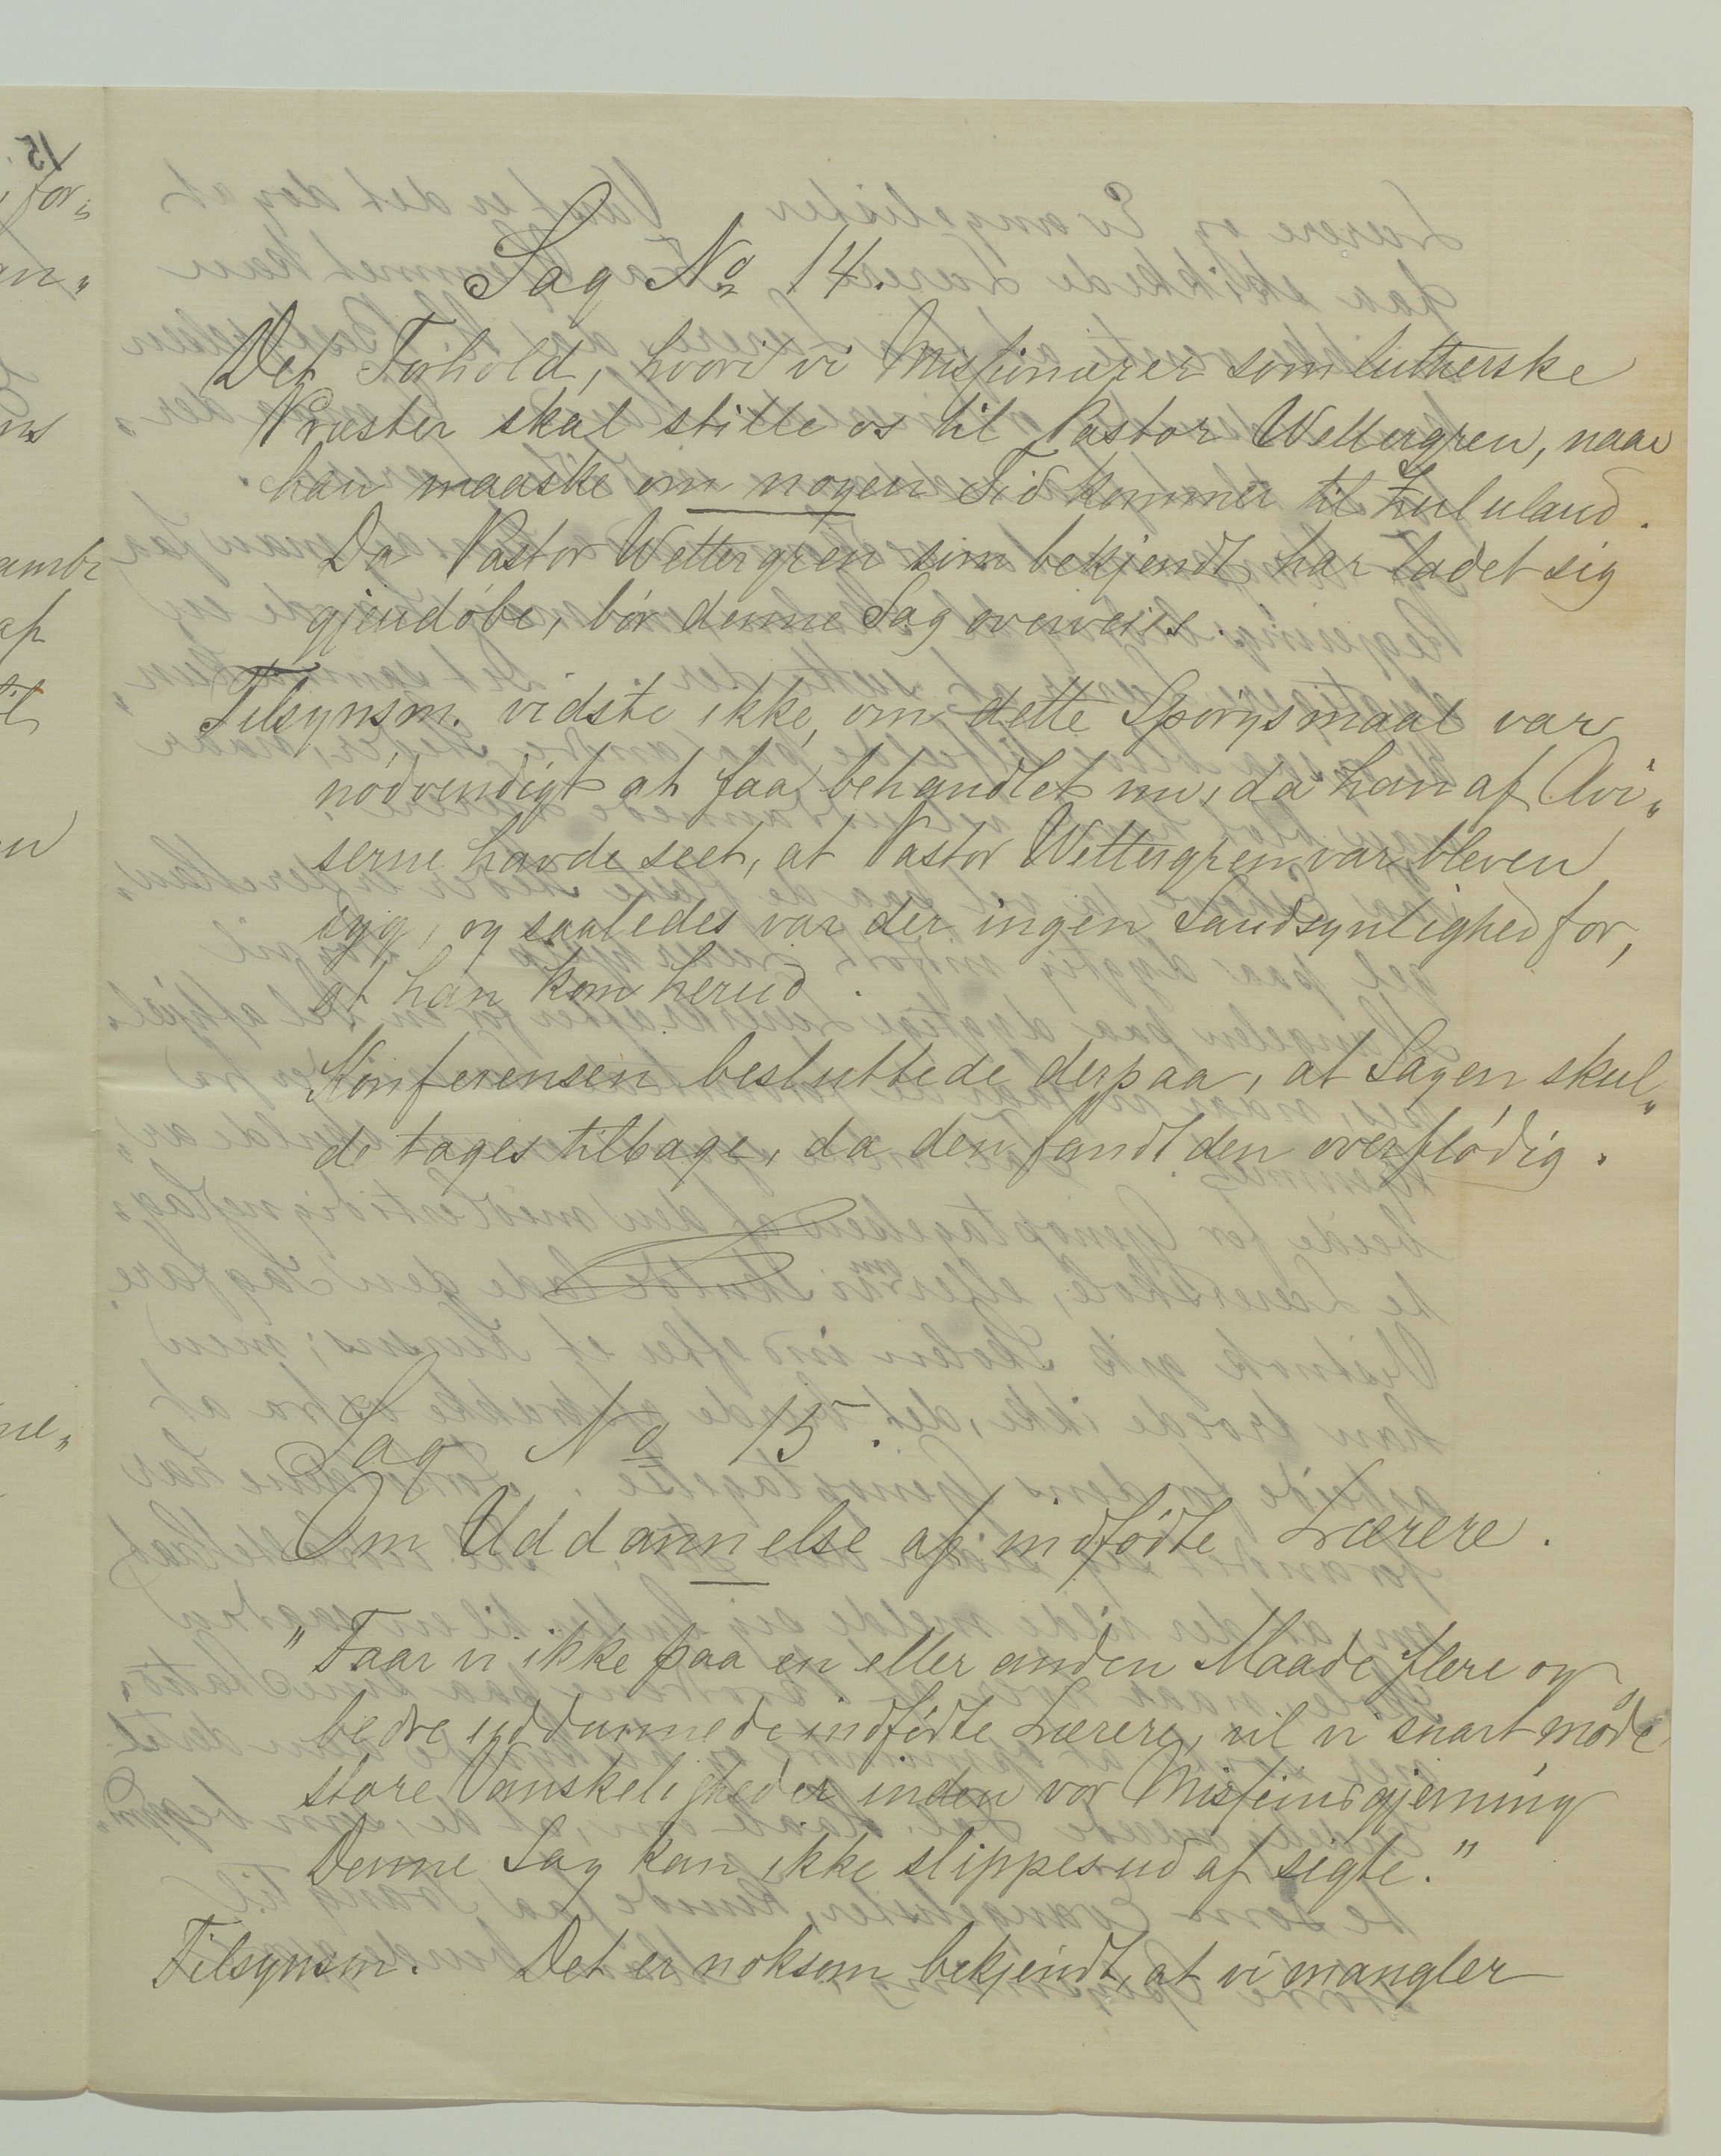 Sag No 14.
Det Forhold, hvori vi Missionærer som lutherske
Præster skal stille os til Pastor Wettergren, naar
han maaske om nogen Tid kommer til Zululand.
Da Pastor Wettergren som bekjendt har ladet sig
gjendøbe, bør denne Sag overveies.
Tilsynsm. vidste ikke, om dette Spørgsmaal var
nødvendigt at faa behandlet nu, da han af Avi„
serne havde seet, at Pastor Wettergren var bleven
syg, og saaledes var der ingen Sandsynlighed for,
at han kom herud.
Konferensen besluttede derpaa, at Sagen skul„
de tages tilbage, da den fandt den overflødig.
Sag No 15.
Om Uddannelse af indfødte Lærere.
"Faar vi ikke paa en eller anden Maade flere og
bedre uddannede indfødte Lærere, vil vi snart møde
store Vanskeligheder inden vor Missionsgjerning
Denne Sag kan ikke slippes ud af sigte."
Tilsynsm. Det er noksom bekjendt, at vi mangler